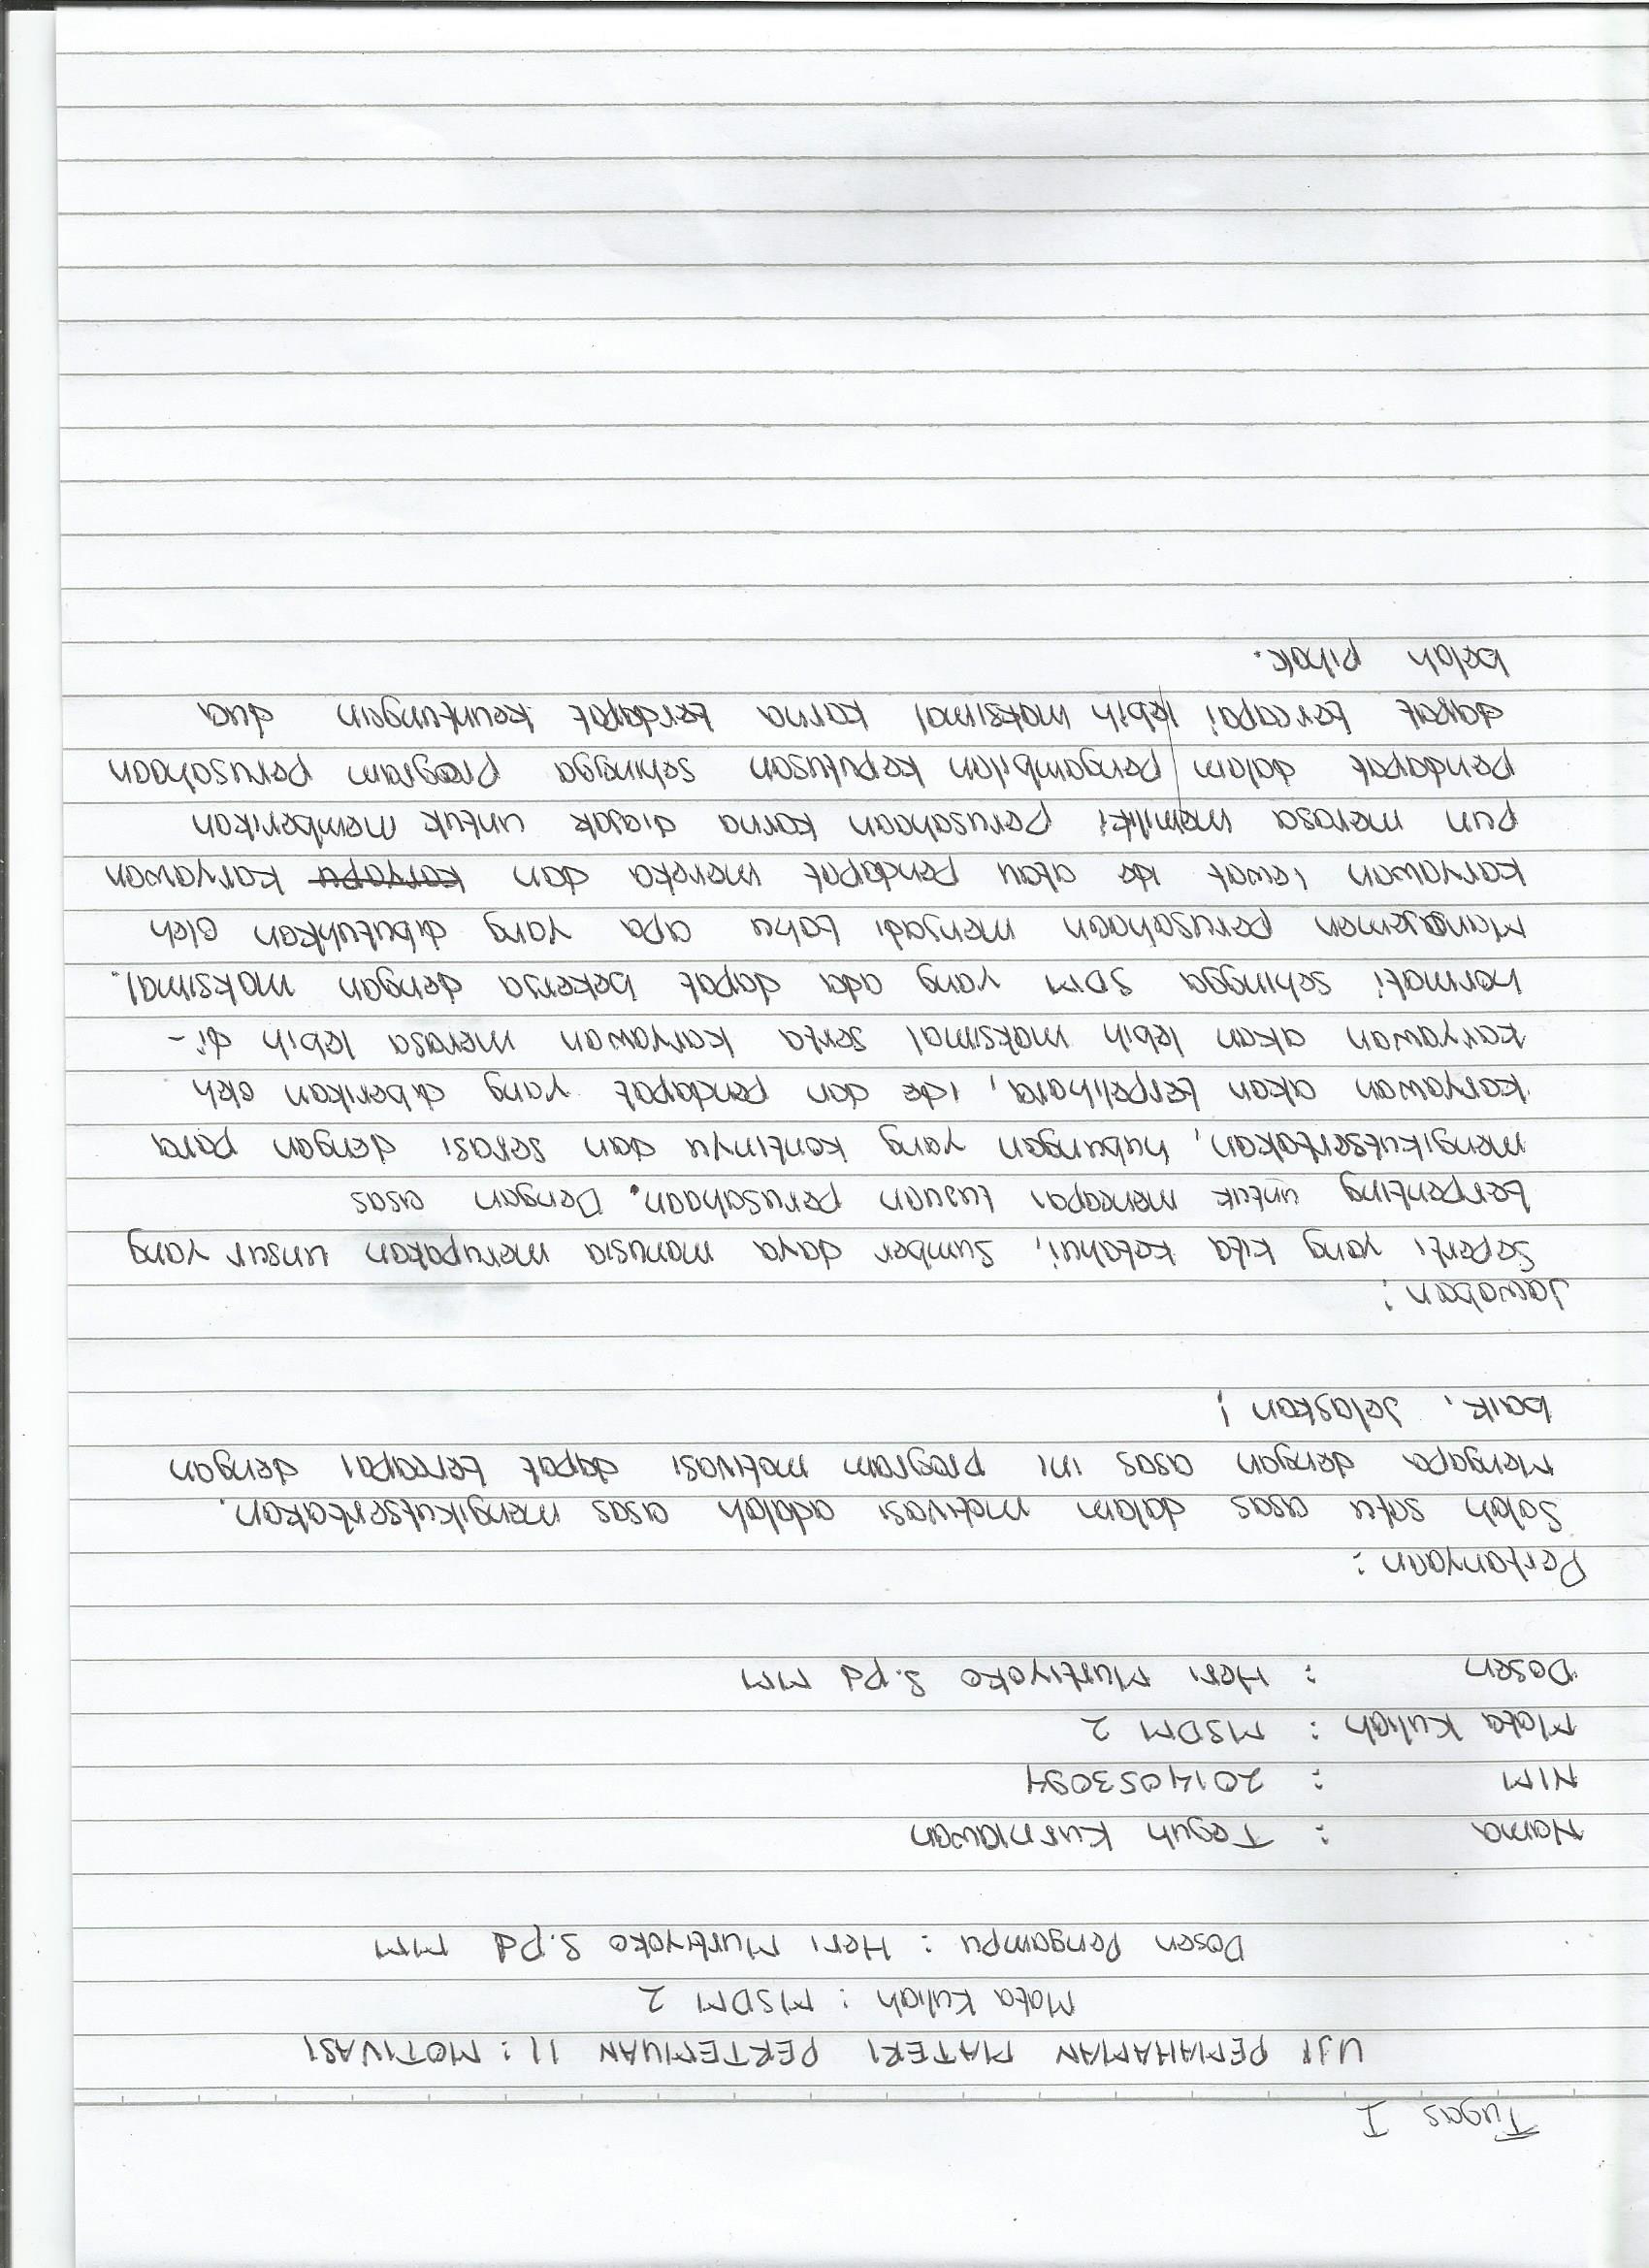 Tugas I
UJI PEMAHAMAN MATERI PERTEMUAN II : MOTIVASI
Mata Kuliah : MSDM 2
Dosen Pengampu : Heri Murtiyoko S.Pd MM
Nama : Teguh Kurniawan
NIM : 2014053094
Mata Kuliah : MSDM 2
Dosen : Heri Murtiyoko S.Pd MM
Pertanyaan :
Salah satu asas dalam motivasi adalah asas mengikutsertakan.
Mengapa dengan asas ini program motivasi dapat tercapai dengan
baik. Jelaskan !
Jawaban :
Seperti yang kita ketahui, Sumber daya manusia merupakan unsur yang
terpenting untuk mencapai tujuan perusahaan. Dengan asas
mengikutsertakan, hubungan yang kontinyu dan serasi dengan para
karyawan akan terpelihara, ide dan pendapat yang diberikan oleh
karyawan akan lebih maksimal serta karyawan merasa lebih di-
hormati sehingga SDM yang ada dapat bekerja dengan maksimal.
Manajemen perusahaan menjadi tahu apa yang dibutuhkan oleh
karyawan lewat ide atau pendapat mereka dan karyapu karyawan
pun merasa memiliki perusahaan karna diajak untuk memberikan
pendapat dalam pengambilan keputusan sehingga program perusahaan
dapat tercapai lebih maksimal karna terdapat keuntungan dua
belah pihak.